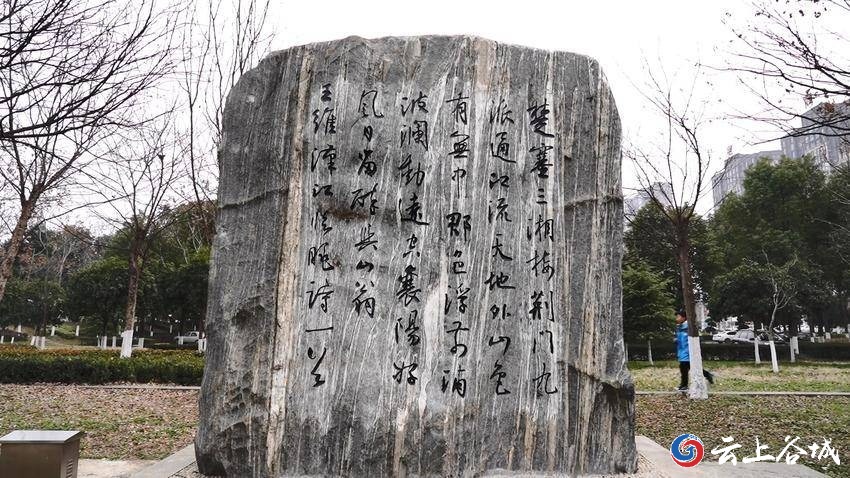 楚塞三湘接荆门九
派通江流天地外山色
有無中郡邑浮前浦
波瀾動遠空襄陽好
风日留醉與山翁
王維漢江臨眺詩一首
云上谷城